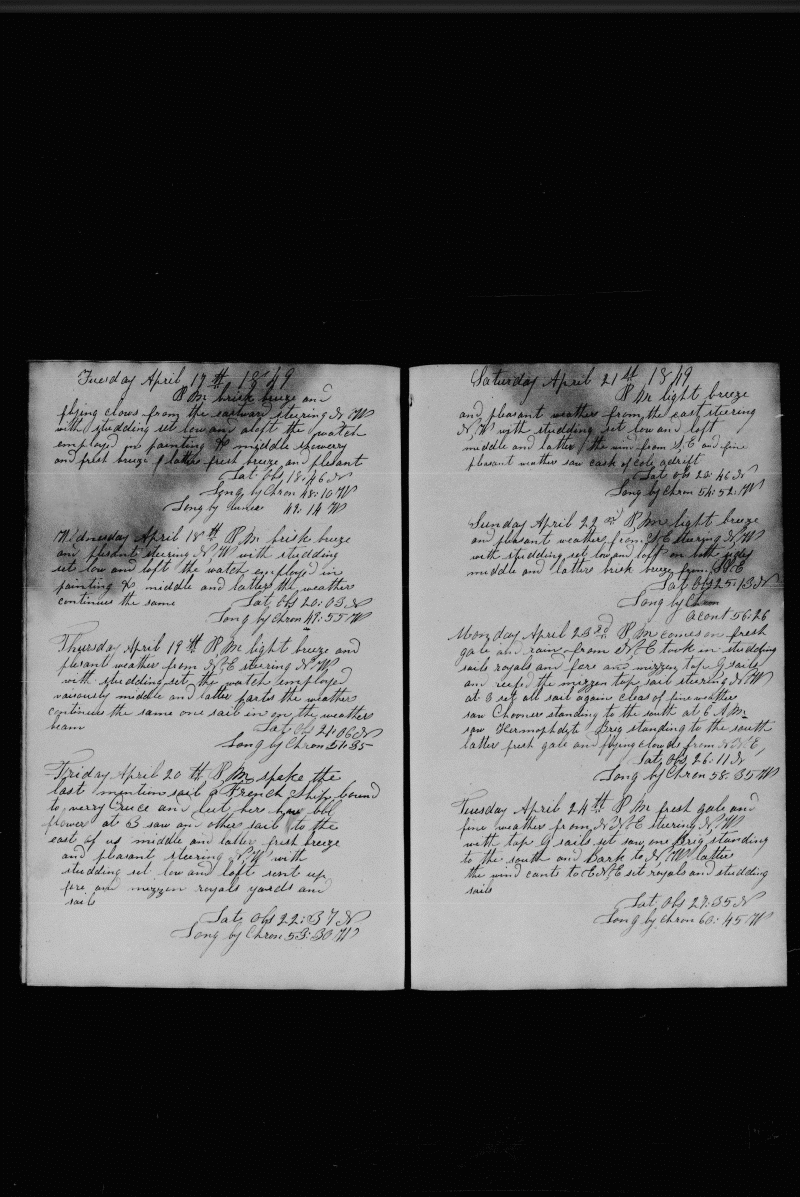 Tuesday April 17th 1849
P M brisk breze and
flying clows from the eastward steering N, W
with studding set low and aloft the watch
employed in painting & middle showery
and fresh breze / latter fresh breeze and plesant
Lat Obs 18:46 N
Long by Chron 48:10 W
Long by 49:14 W
Wednesday April 18th P M brisk breze
and plesant steering N, W with studding
set low and loft the watch employed in
painting & middle and latter the weather
continues the same Lat, Obs 20:03 N
Long by Chron 49:55 W
Thursday April 19th P M light breeze and
plesant weather from N, E steering N, W
with studding set the watch employed
variously middle and latter parts the weather
continues the same one sail in on the weather
beam Lat Obs 21:06 N
Long by Chron 51:35
Friday April 20th, P M spoke the
last mention sail a French Ship bound
to verry Cruce and let here have bbl
flower at 3 saw an other sail to the
east of us middle and latter fresh breeze
and pleasant steering N, W with
studding set low and loft sent up
fore and mezzen royals yards and
sails
Lat, Obs 22:37 N
Long by Chron 53:30 W
Saturday April 21st 1849
P M light breeze
and pleasant weather from the east steering
N, W with studding set low and loft
middle and latter / the wind from S, E and fine
pleasant weather saw cask of adrift
Lat obs 23:46 N
Long by Chron 54:52 W
Sunday April 22nd P M light breeze
and pleasant weather from S, E steering N, W
with studding set low and loft on both sides
middle and latter brisk breeze from S, E
Lat Obs 25:13 N
Long by Chron
acont 56:26
Monday April 23rd P M comes on fresh
gale and rain from N, E took in studding
sails royals and fore and mizzen top G sails
and reefed the mizzen top sail steering N, W
at 8 set all sail again clear of fine weather
saw Chooner standing to the south at 6 A M
saw Hermophdit Brig standing to the south
latter fresh gale and flying clowds from N, N, E,
Lat, Obs 26:11 N
Long by Chron 58:35 W
Tuesday April 24th P M fresh gale and
fine weather from N, N, E steering N, W
with top G sails set saw one Brig standing
to the south and Bark to N, W latter
the wind cants to E N, E set royals and studding
sails
Lat, Obs 27:35 N
Long by Chron 60:45 W